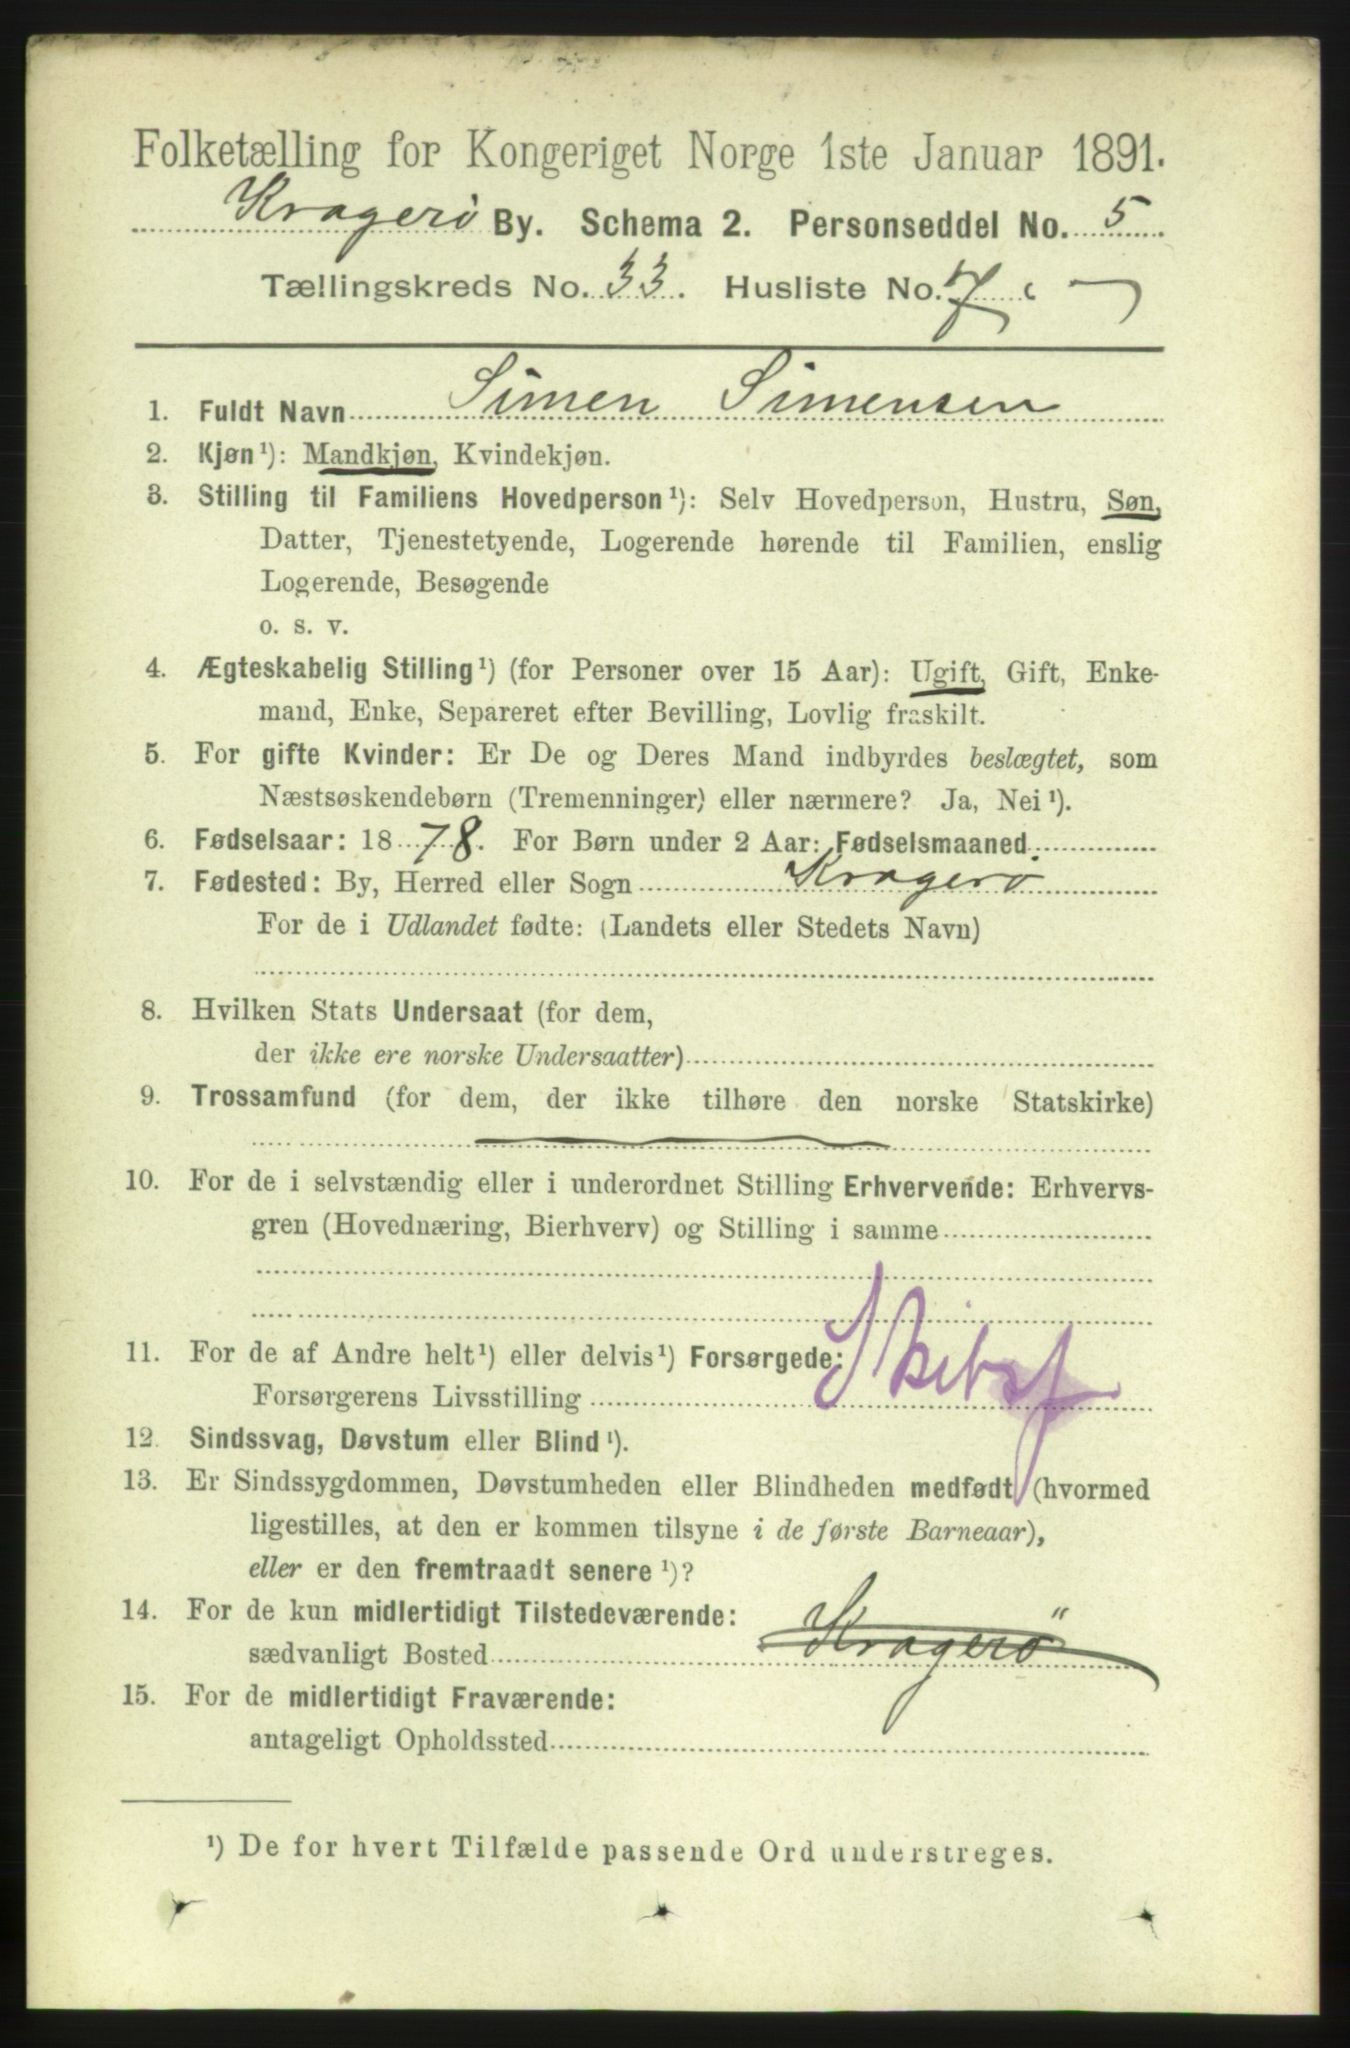 Folketælling for Kongeriget Norge 1ste Januar 1891.
Kragerø By. Schema 2. Personseddel No. 5
Tællingskreds No. 33. Husliste No. 7
1. Fuldt Navn Simen Simensen
2. Kjøn¹): Mandkjøn, Kvindekjøn.
3. Stilling til Familiens Hovedperson¹): Selv Hovedperson, Hustru, Søn,
Datter, Tjenestetyende, Logerende hørende til Familien, enslig
Logerende, Besøgende
o. s. v.
4. Ægteskabelig Stilling¹) (for Personer over 15 Aar): Ugift, Gift, Enke-
mand, Enke, Separeret efter Bevilling, Lovlig fraskilt.
5. For gifte Kvinder: Er De og Deres Mand indbyrdes beslægtet, som
Næstsøskendebørn (Tremenninger) eller nærmere? Ja, Nei¹).
6. Fødselsaar: 1878. For Børn under 2 Aar: Fødselsmaaned
7. Fødested: By, Herred eller Sogn Kragerø
For de i Udlandet fødte: (Landets eller Stedets Navn)
8. Hvilken Stats Undersaat (for dem,
der ikke ere norske Undersaatter)
9. Trossamfund (for dem, der ikke tilhøre den norske Statskirke)
10. For de i selvstændig eller i underordnet Stilling Erhvervende: Erhvervs-
gren (Hovednæring, Bierhverv) og Stilling i samme
11. For de af Andre helt¹) eller delvis¹) Forsørgede:
Forsørgerens Livsstilling Skibsf
12. Sindssvag, Døvstum eller Blind¹).
13. Er Sindssygdommen, Døvstumheden eller Blindheden medfødt (hvormed
ligestilles, at den er kommen tilsyne i de første Barneaar),
eller er den fremtraadt senere¹)?
14. For de kun midlertidigt Tilstedeværende:
sædvanligt Bosted Kragerø
15. For de midlertidigt Fraværende:
antageligt Opholdssted
¹) De for hvert Tilfælde passende Ord understreges.